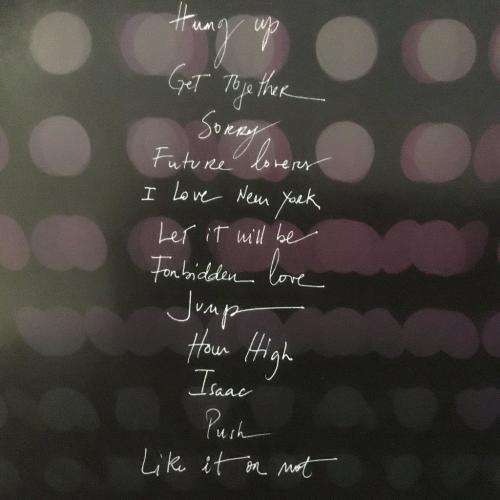 Hung up
Get Together
Sorry
Future lovers
I Love New York
Let it will be
Forbidden love
Jump
How High
Isaac
Push
Like it or not